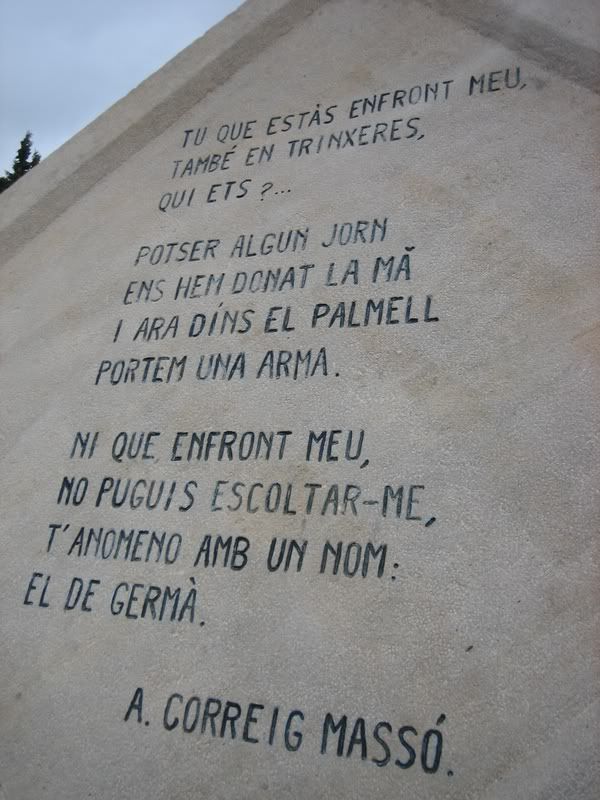 TU QUE ESTÀS ENFRONT MEU,
TAMBÉ EN TRINXERES,
QUI ETS ?...
POTSER ALGUN JORN
ENS HEM DONAT LA MÀ
I ARA DÍNS EL PALMELL
PORTEM UNA ARMA.
NI QUE ENFRONT MEU,
NO PUGUIS ESCOLTAR-ME,
T'ANOMENO AMB UN NOM:
EL DE GERMÀ.
A. CORREIG MASSÓ.